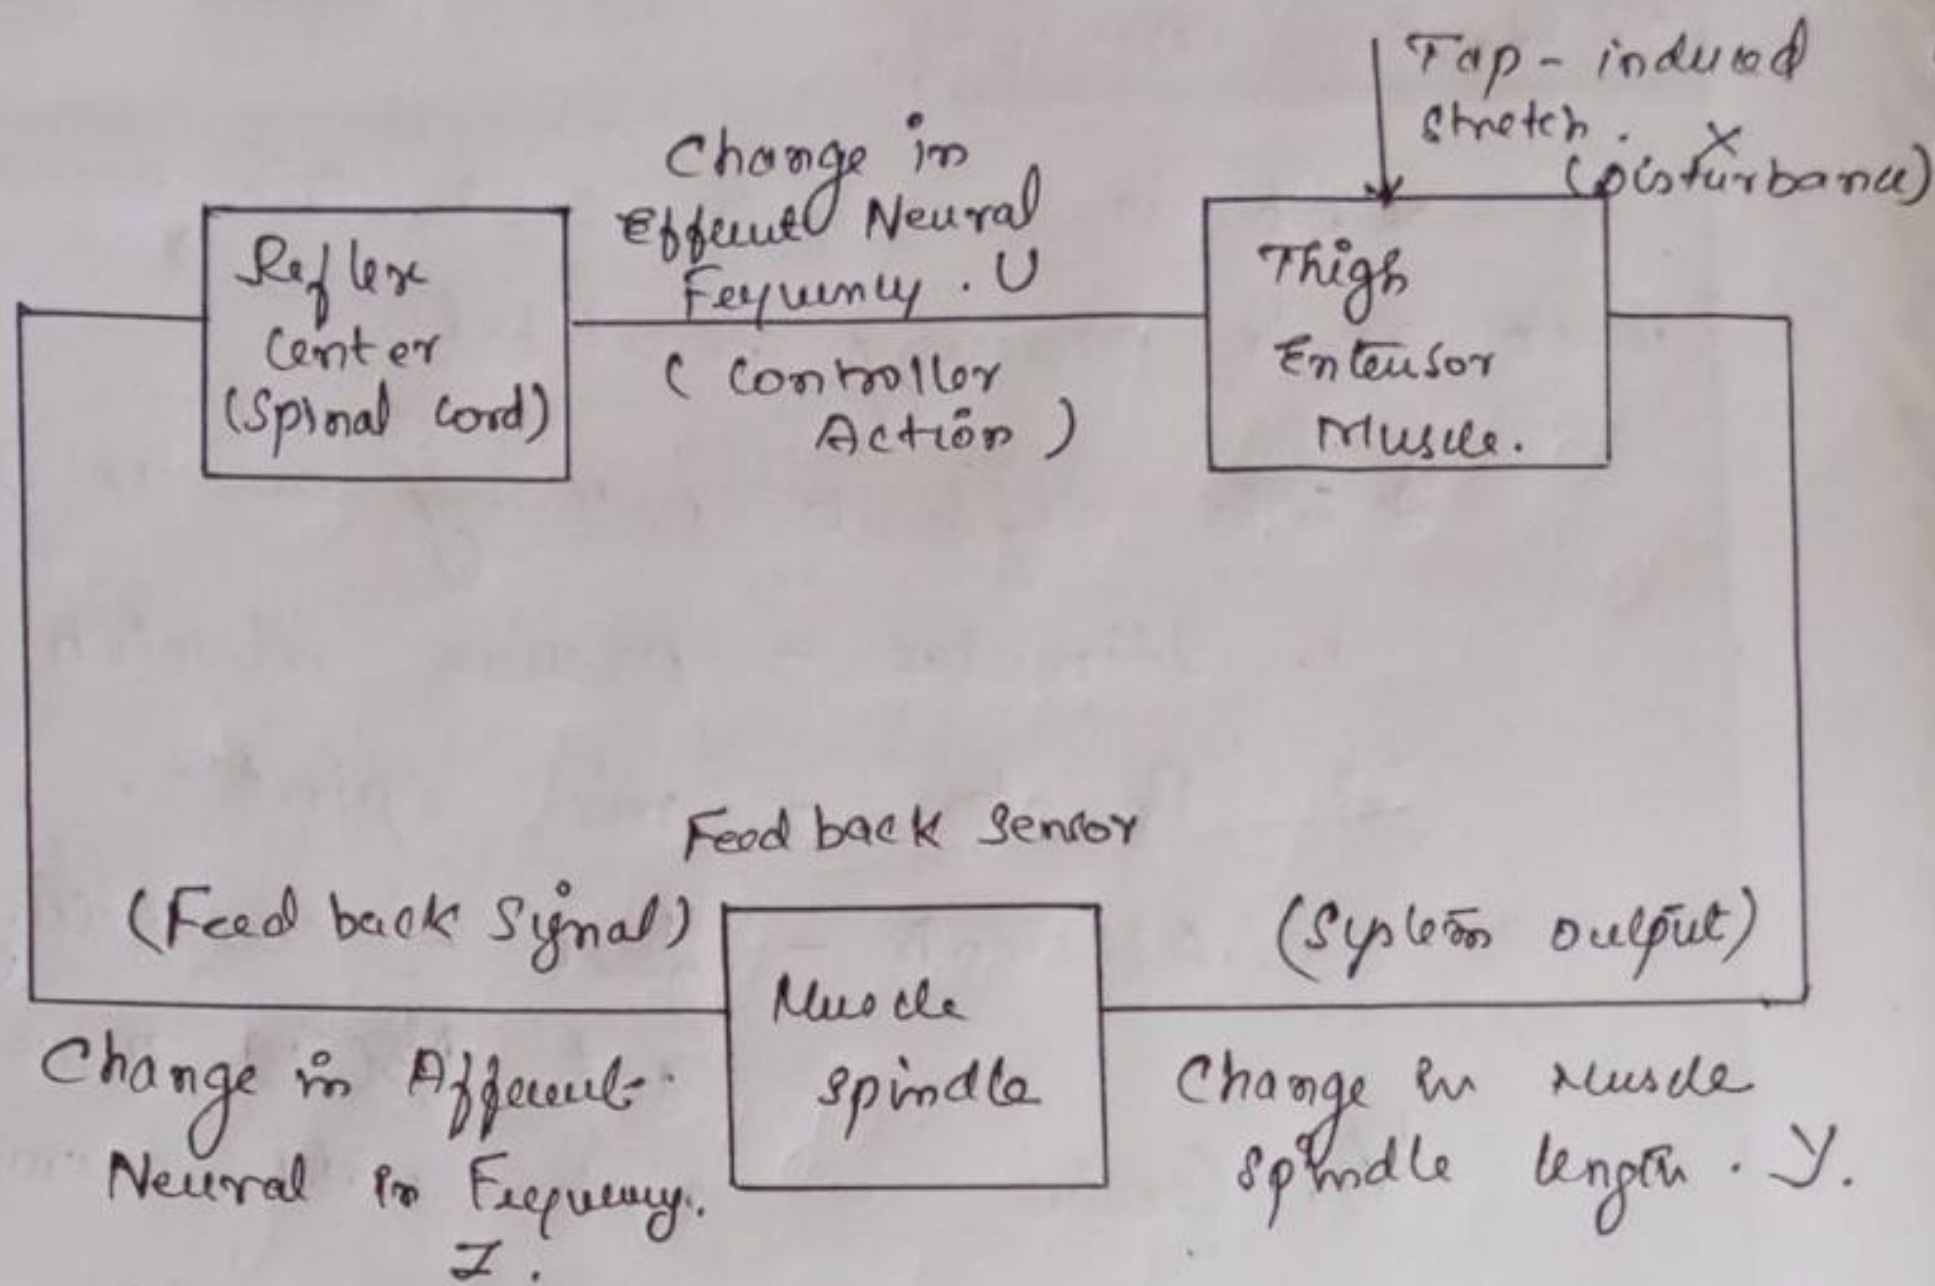 Tap - induced
stretch. X
(Disturbance)
Change in
Efferent Neural
Feqyuency. U
(Controller
Action)
Reflex
Center
(Spinal Cord)
Thigh
Extensor
Muscle.
Feed back Sensor
(Feed back Signal)
Muscle
spindle
(System output)
Change in Afferent
Neural in Frequency.
Z.
Change in Muscle
Spindle length. Y.